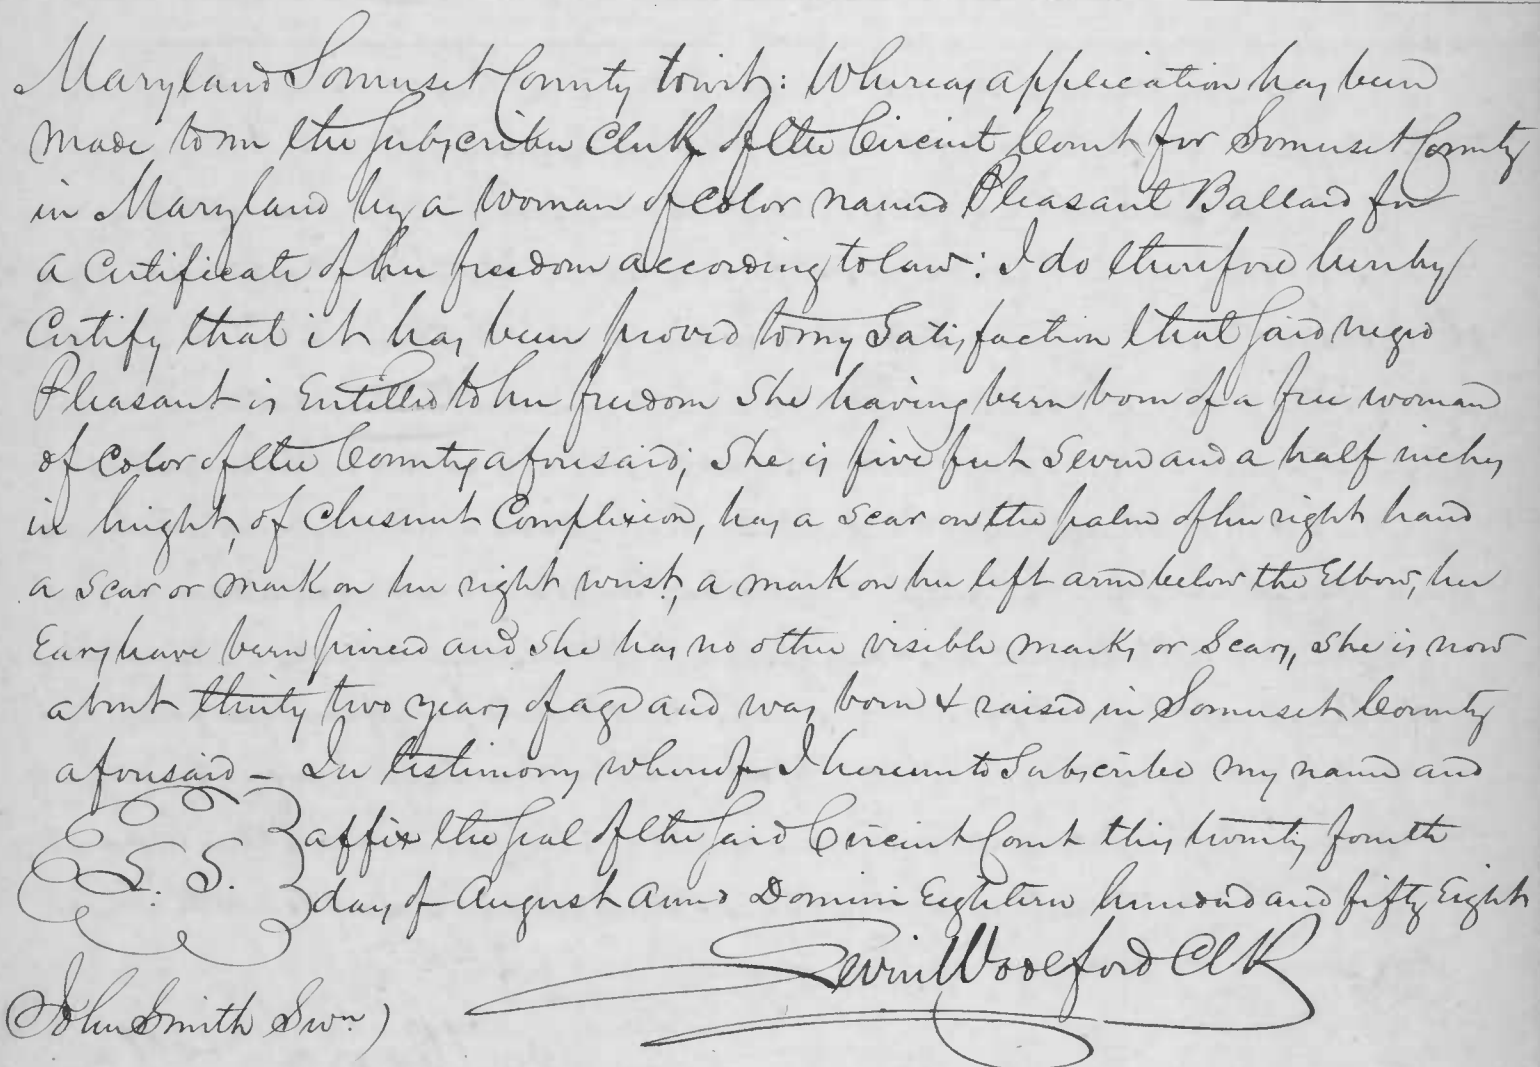 Maryland Somerset County to wit: Whereas application has been
made to me the Subscriber Clerk of the Circuit Court for Somerset County
in Maryland by a woman of Color named Pleasant Ballard for
a Certificate of her freedom according to law: I do therefore hereby
Certify that it has been proved to my Satisfaction that Said negro
Pleasant is Entitled to her freedom She having been born of a free woman
of Color of the County aforesaid; She is five feet Seven and a half inches
in hieght, of Chesnut Complexion, has a Scar on the palm of her right hand
a Scar or mark on her right wrist, a mark on her left arm below the Elbow, her
Ears have been pierced and She has no other visible marks or Scars, She is now
about thirty two years of age and was born & raised in Somerset County
aforesaid – In testimony whereof I hereunto Subscribe my name and
affix the Seal of the Said Circuit Court this twenty fourth
L. S.
day of August Anno Domini Eighteen hundred and fifty Eight
Levin Woolford Clk
(John Smith Swn)